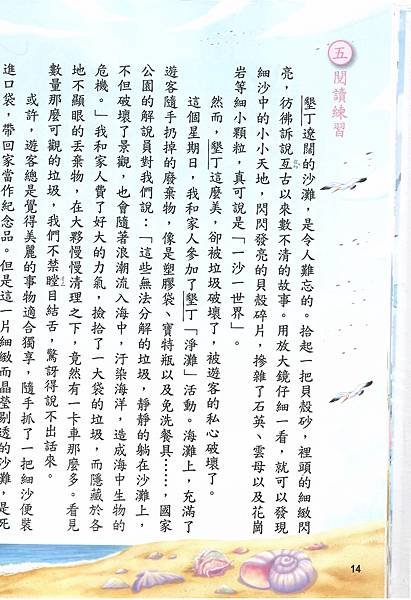 五 閱讀練習
墾丁遼闊的沙灘，是令人難忘的。拾起一把貝殼砂，裡頭的細緻閃
亮，彷彿訴說亙古以來數不清的故事。用放大鏡仔細一看，就可以發現
細沙中的小小天地，閃閃發亮的貝殼碎片，摻雜了石英、雲母以及花崗
岩等細小顆粒，真可說是「一沙一世界」。
然而，墾丁這麼美，卻被垃圾破壞了，被遊客的私心破壞了。
這個星期日，我和家人參加了墾丁「淨灘」活動。海灘上，充滿了
遊客隨手扔掉的廢棄物，像是塑膠袋、寶特瓶以及免洗餐具……，國家
公園的解說員對我們說：「這些無法分解的垃圾，靜靜的躺在沙灘上，
不但破壞了景觀，也會隨著浪潮流入海中，汙染海洋，造成海中生物的
危機。」我和家人費了好大的力氣，撿拾了一大袋的垃圾，而隱藏於各
地不顯眼的丟棄物，在大夥慢慢清理之下，竟然有一卡車那麼多。看見
數量那麼可觀的垃圾，我們不禁瞠目結舌，驚訝得說不出話來。
或許，遊客總是覺得美麗的事物適合獨享，隨手抓了一把細沙便裝
進口袋，帶回家當作紀念品。但是這一片細緻而晶瑩剔透的沙灘，是死
14